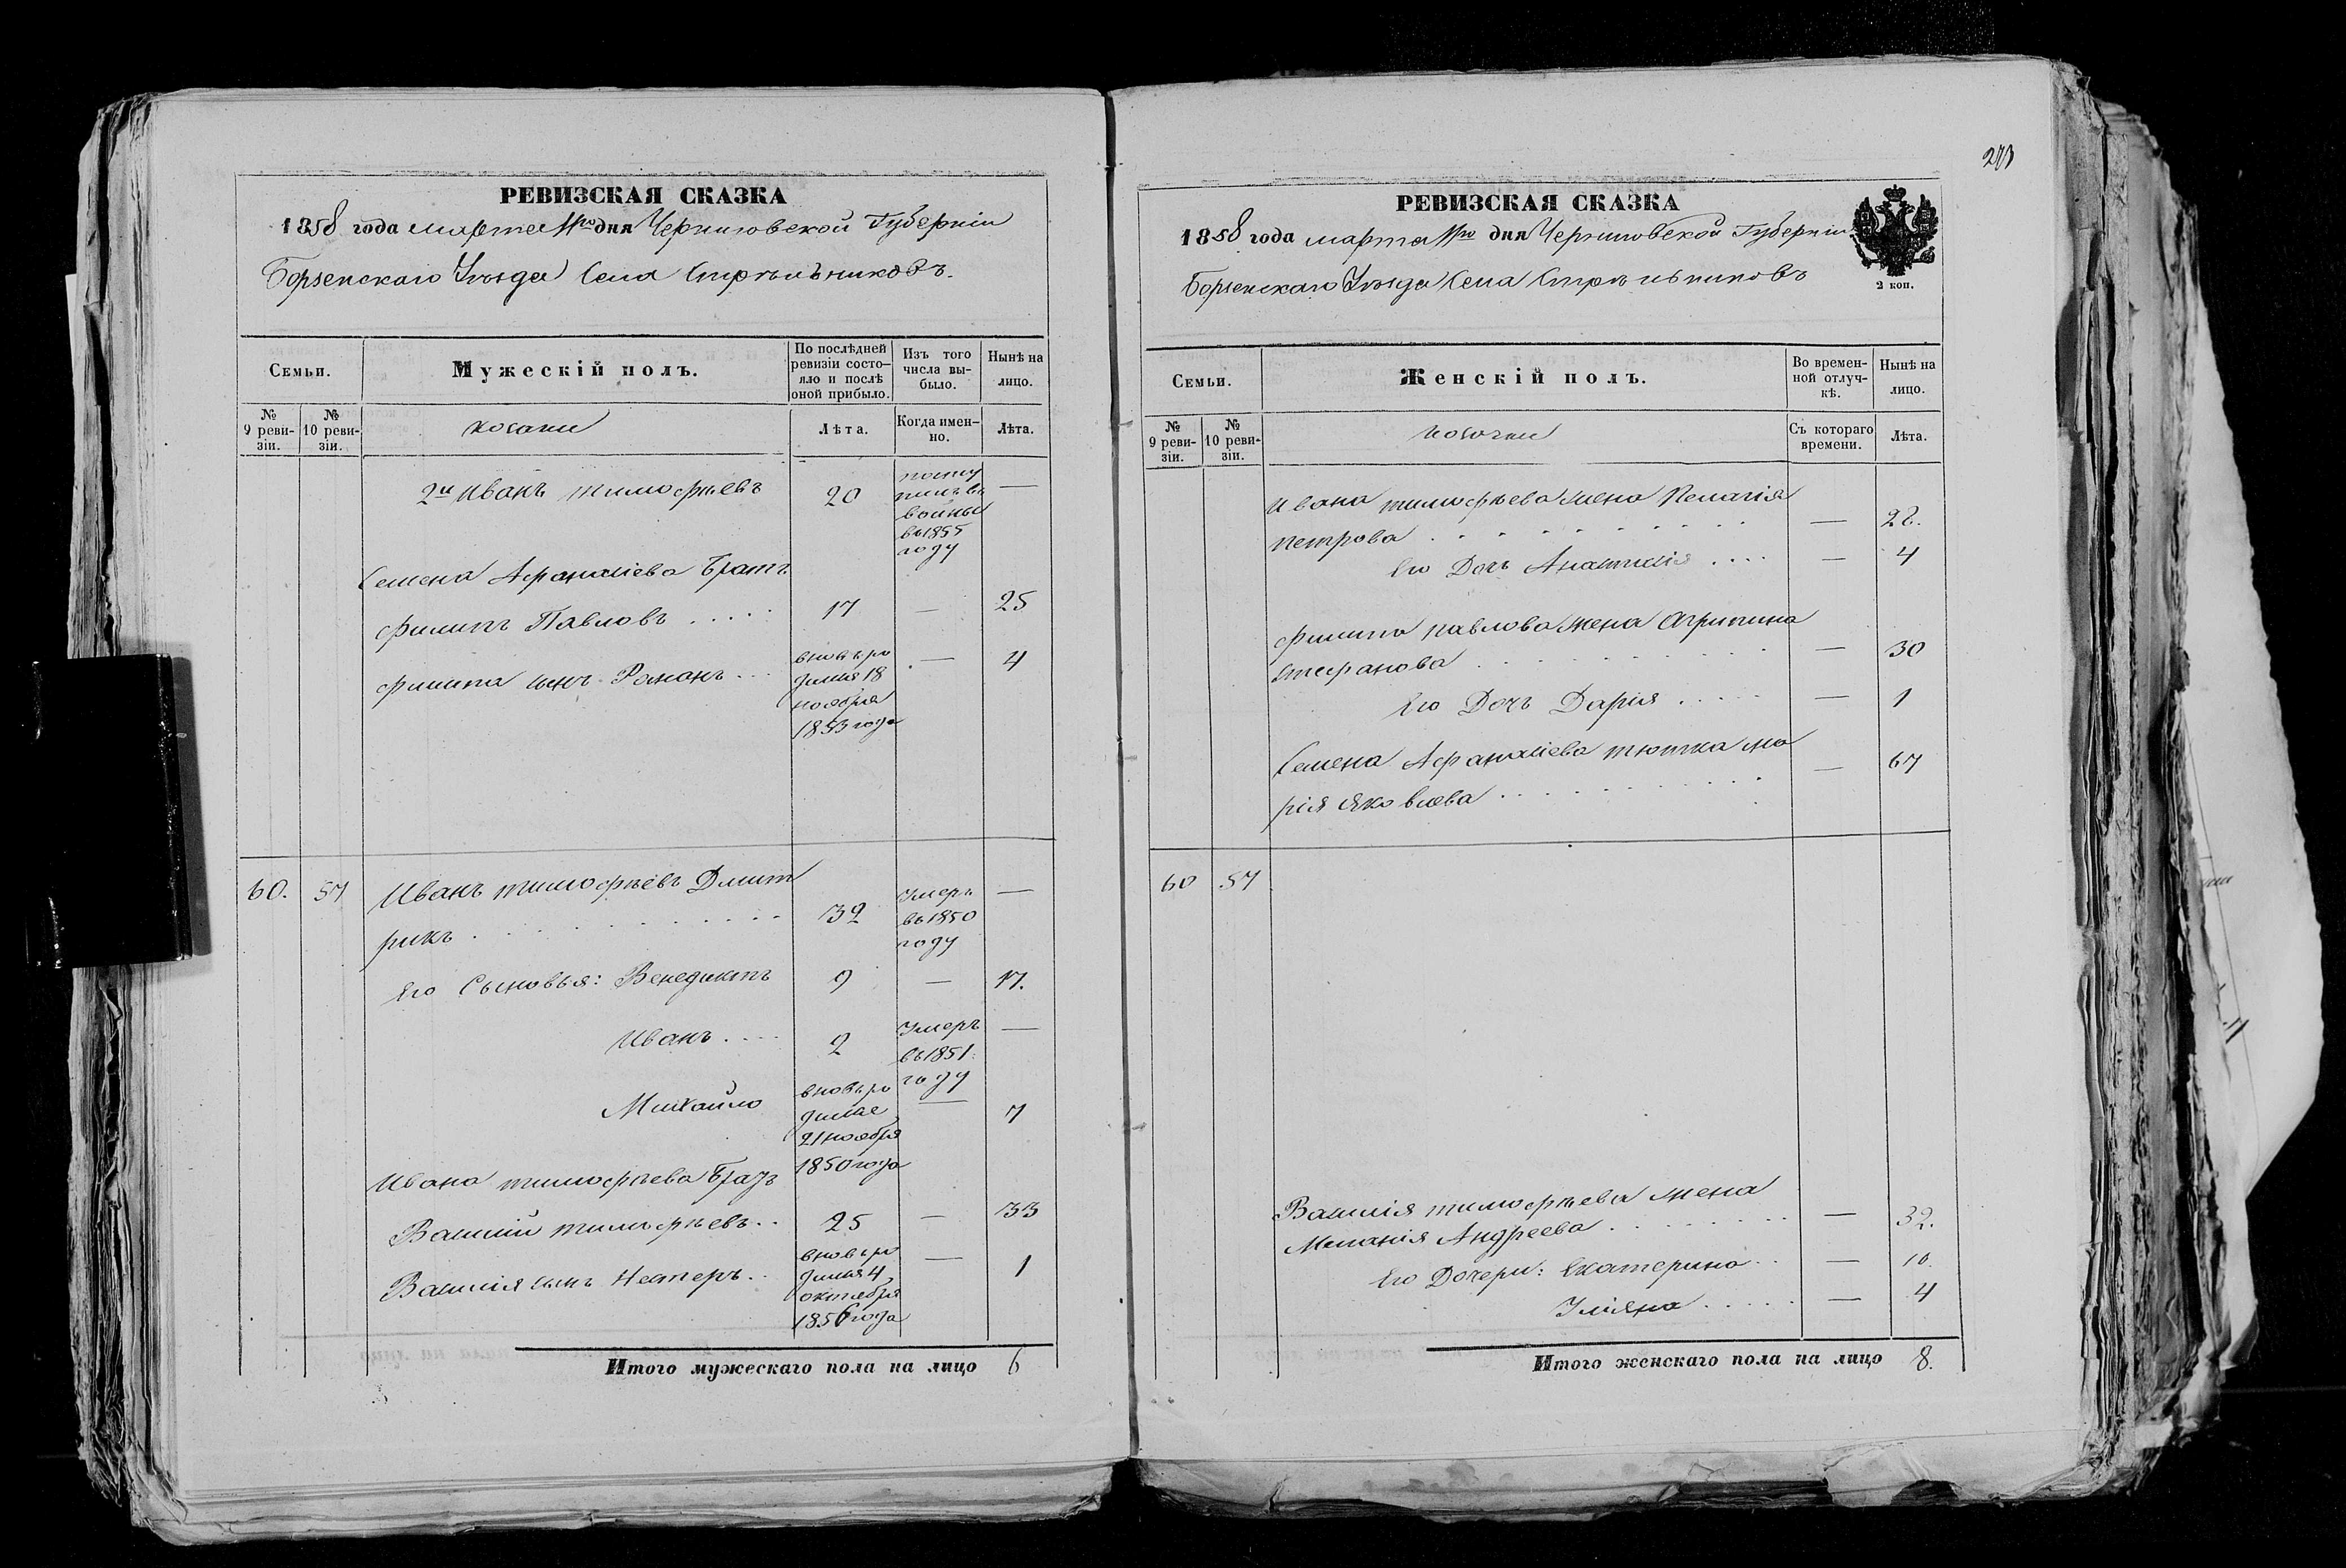 РЕВИЗСКАЯ СКАЗКА
1858 года марта 11го дня Черниговской Губерніи
Борзенскаго Уѣзда Села Стрѣльниковъ.
Семьи.
Мужескій полъ.
По послѣдней ревизіи состояло и послѣ оной прибыло.
Изъ того числа выбыло.
Нынѣ на лицо.
№ 9 ревизіи.
№ 10 ревизіи.
Лѣта.
Когда именно.
Лѣта.
2й Иванъ Тимофѣевъ 20 —
въ 1855
году
Семена Афанасіева Братъ
Филипъ Павловъ 17 — 25
Филипа сынъ Романъ вновь ро — 4
дился 18
ноября
1853 года
60. 57 Иванъ Тимофѣевъ Дмит
рикъ 32 Умеръ —
въ 1850
году
Его Сыновья: Венедиктъ 9 — 17.
Иванъ 2 Умеръ —
въ 1851
году
Михайло вновь ро — 7
дился
21 ноября
1850 года
Ивана Тимофѣева Братъ
Василій Тимофѣевъ 25 — 33
Василія сынъ Нестеръ вновь ро — 1
дился 4
октября
1856 года
Итого мужескаго пола на лицо 6
РЕВИЗСКАЯ СКАЗКА
1858 года марта 11го дня Черниговской Губерніи
Борзенскаго Уѣзда Села Стрѣльниковъ
2 коп.
Семьи.
Женскій полъ.
Во временной отлучкѣ.
Нынѣ на лицо.
№ 9 ревизіи.
№ 10 ревизіи.
Съ котораго времени.
Лѣта.
Ивана Тимофѣева жена Пелагія
Петрова — 28.
Его Дочь — 4
Филипа Павлова жена Агрипина
Стефанова — 30
Его Дочь Дарія — 1
Семена Афанасіева тютка Ма
рія Яковлева — 67
60 57
Василія Тимофѣева жена
Меланія Андреева — 32.
Его Дочери: Екатерина — 10.
Уліяна — 4
Итого женскаго пола на лицо 8.